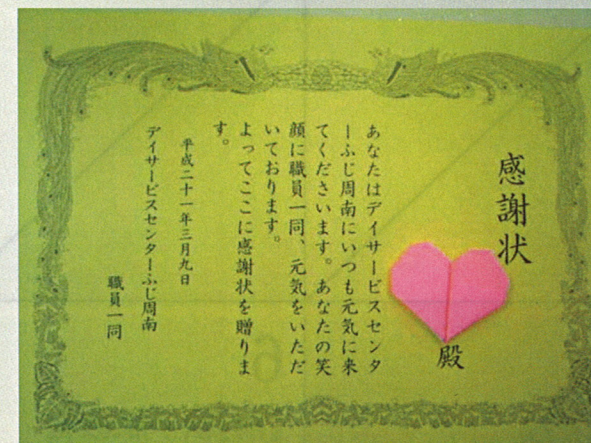 感謝状
殿
あなたはデイサービスセンタ
ーふじ周南にいつも元気に来
てくださいます。あなたの笑
顔に職員一同、元気をいただ
いております。
よってここに感謝状を贈りま
す。
平成二十一年三月九日
デイサービスセンターふじ周南
職員一同